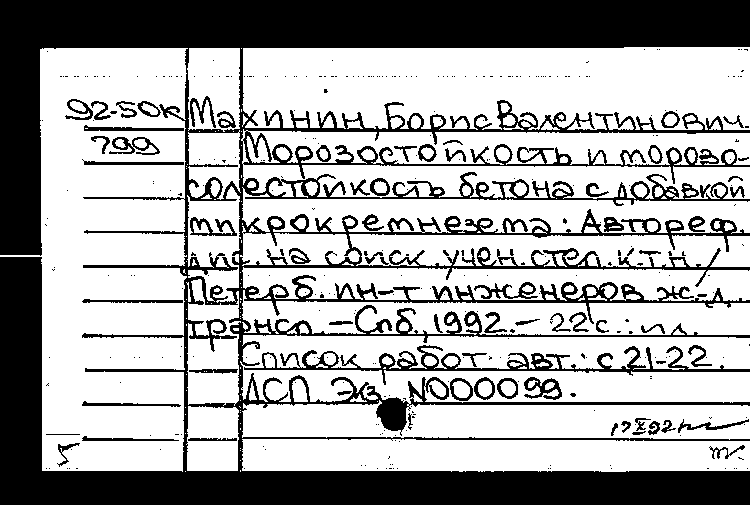 92-50к Махинин, Борис Валентинович.
799 Морозостойкость и морозо-
солестойкость бетона с добавкой
микрокремнезема: Автореф.
дис. на соиск. учен. степ. к.т.н. /
Петерб. ин-т инженеров ж.-д.
трансп. – Спб., 1992. – 22с.: ил.
Список работ авт.: с.21-22.
ДСП. Экз. N000099.
17 X 92